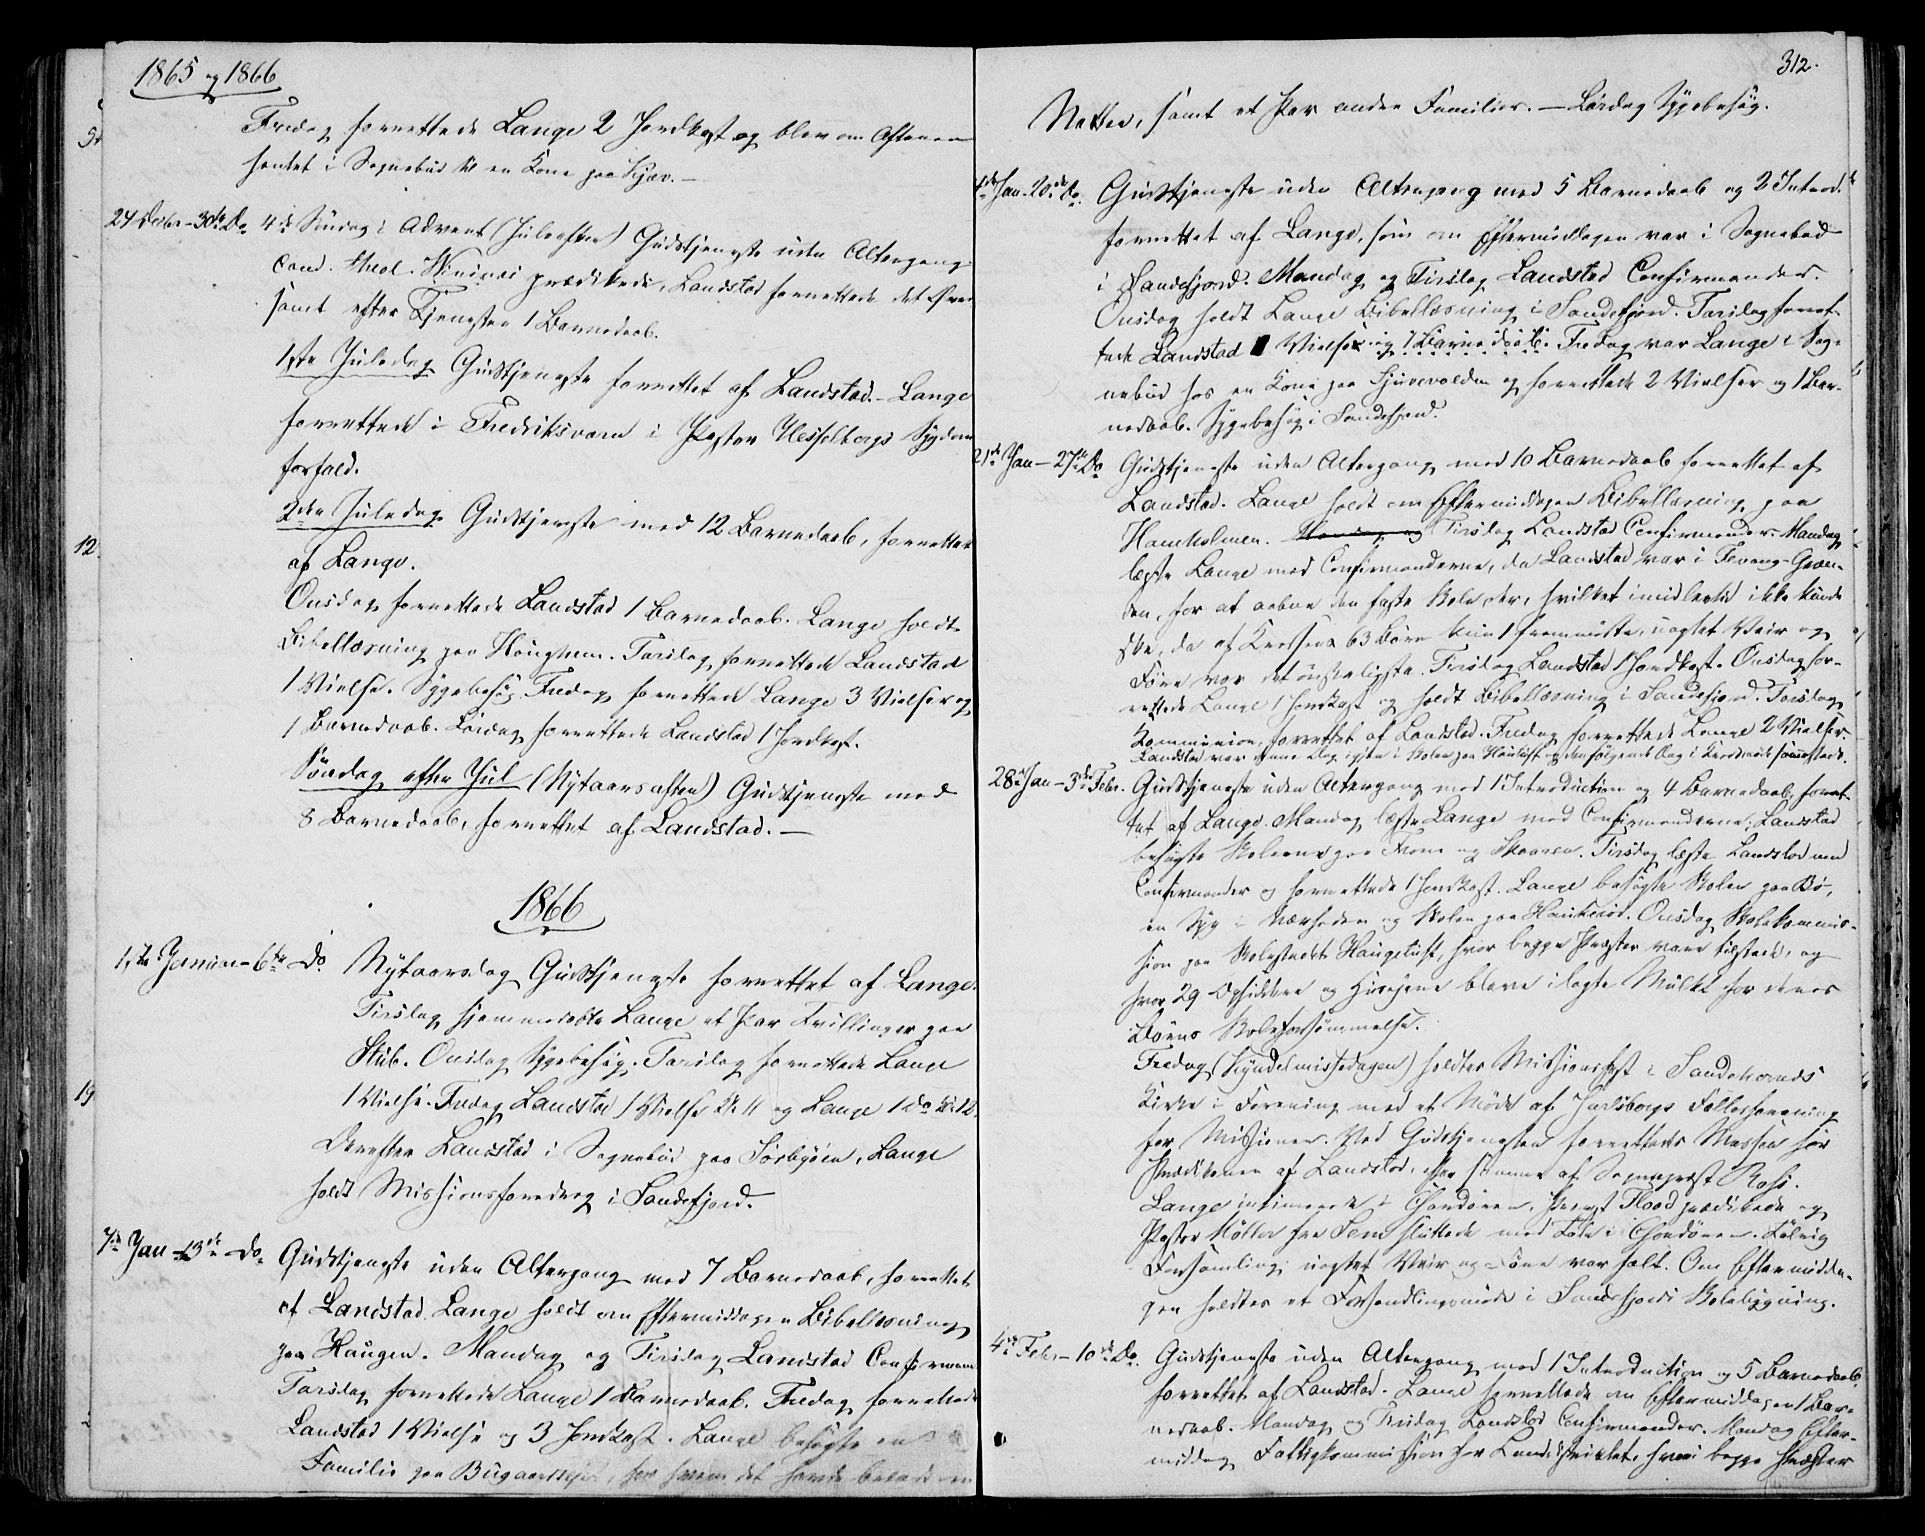 1865 og 1866
Fredag forrettede Lange 2 Jordkast og blev om Aftenen
hentet i Sognebud til en Kone paa
24 Decbr - 30te Do 4de Søndag i Advent (Juleaften) Gudstjeneste uden Altergang
Cand. theol. prædikede, Landstad forrettede det Øvrige
samt efter Tjenesten 1 Barnedaab.
1ste Juledag Gudstjeneste forrettet af Landstad. - Lange
forrettede i Fredriksværn i Pastor Hesselbergs Sygdoms
forfald.
2den Juledag Gudstjeneste med 12 Barnedaab, forrettet
af Lange.
Onsdag forrettede Landstad 1 Barnedaab. Lange holdt
Bibellæsning paa Torsdag forrettede Landstad
1 Vielse. Sygebesøg. Fredag forrettede Lange 3 Vielser og
1 Barnedaab. Lørdag forrettede Landstad 1 Jordkast.
Søndag efter Jul (Nytaarsaften) Gudstjeneste med
8 Barnedaab, forrettet af Landstad. -
1866
1ste Januar - 6te Do Nytaarsdag Gudstjeneste forrettet af Lange.
Tirsdag hjemmedøbte Lange et Par Tvillinger paa
Stub. Onsdag Sygebesøg. Torsdag forrettede Lange
1 Vielse. Fredag Landstad 1 Vielse Kl. 11 og Lange 1 Do Kl. 12
Derefter Landstad i Sognebud paa Sørbyøen, Lange
holdt Missionsforedrag i Sandefjord.
7de Jan - 13de Do Gudstjeneste uden Altergang med 7 Barnedaab, forrettet
af Landstad. Lange holdt om Eftermiddagen Bibellæsning
paa Haugen. Mandag og Tirsdag Landstad Confirmander
Torsdag forrettede Lange 1 Barnedaab. Fredag forrettede
Landstad 1 Vielse og 3 Jordkast. Lange besøgte en
Familie paa for hvem det havde
5
12
19
312.
samt et Par andre Familier. - Lørdag Sygebesøg.
14de Jan - 20de Do. Gudstjeneste uden Altergang med 5 Barnedaab og 2 Introd.
forrettet af Lange, som om Eftermiddagen var i Sognebud
i Sandefjord. Mandag og Tirsdag Landstad Confirmander.
Onsdag holdt Lange Bibellæsning i Sandefjord. Torsdag forret-
tede Landstad Vielse og 1 Barnedaab. Fredag var Lange i Sog-
nebud hos en Kone paa og forrettede 2 Vielser og 1 Bar-
nedaab. Sygebesøg i Sandefjord.
21de Jan - 27de Do Gudstjeneste uden Altergang med 10 Barnedaab forrettet af
Landstad. Lange holdt om Eftermiddagen Bibellæsning paa
Haneholmen. Mandag og Tirsdag Landstad Confirmander. Mandag
læste Lange med Confirmanderne, da Landstad var i Tevang-Græn-
den, for at aabne den faste Skole der, hvilket imidlertid ikke kunde
ske, da af Kredsens 63 Børn kun 1 fremmødte, uagtet Veir og
Føre var det ønskeligste. Tirsdag Landstad 1 Jordkast. Onsdag for-
rettede Lange 1 Jordkast og holdt Bibellæsning i Sandefjord. Torsdag
Kommunion, forrettet af Landstad. Fredag forrettede Lange 2 Vielser.
Landstad var denne Dag igjen i Skolen paa og den følgende Dag i sammesteds.
28de Jan - 3die Febr. Gudstjeneste uden Altergang med 1 Introduction og 4 Barnedaab, forret-
tet af Lange. Mandag læste Lange med Confirmanderne, Landstad
besøgte Skolerne paa Fram og Skaaren. Tirsdag læste Landstad med
Confirmander og forrettede 1 Jordkast. Lange besøgte Skolen paa Bø,
en Syg i Nærheden og Skolen paa Haukerød. Onsdag Skolekommis-
sion paa Skolestedet Haugeluft, hvor begge Præster vare tilstede, og
hvor 29 Opsiddere og Huusfolk bleve ilagte Mulkt for deres
Børns Skoleforsømmelse.
Fredag (Kyndelmissedagen) holdtes Missionsfest i Sandeherreds
Kirke i Forening med et Møde af Jarlsbergs Fællesforening
for Missionen. Ved Gudstjenesten forrettedes Messen før
Prædikenen af Landstad, efter samme af Sogneprest
Lange intimerede i Chordøren, Provst Flood prædikede og
Pastor Møller fra Sem sluttede med Tale i Chordøren. Talrig
Forsamling, uagtet Veir og Føre var fælt. Om Eftermidda-
gen holdtes et Forhandlingsmøde i Sandefjords Skolebygning.
4de Febr. - 10de Do. Gudstjeneste uden Altergang med 1 Introduction og 5 Barnedaab
forrettet af Landstad. Lange forrettede om Eftermiddagen 1 Bar-
nedaab. Mandag og Tirsdag Landstad Confirmander. Mandag Efter-
middag Fattigkommission for Landdistriktet, hvori begge Præster